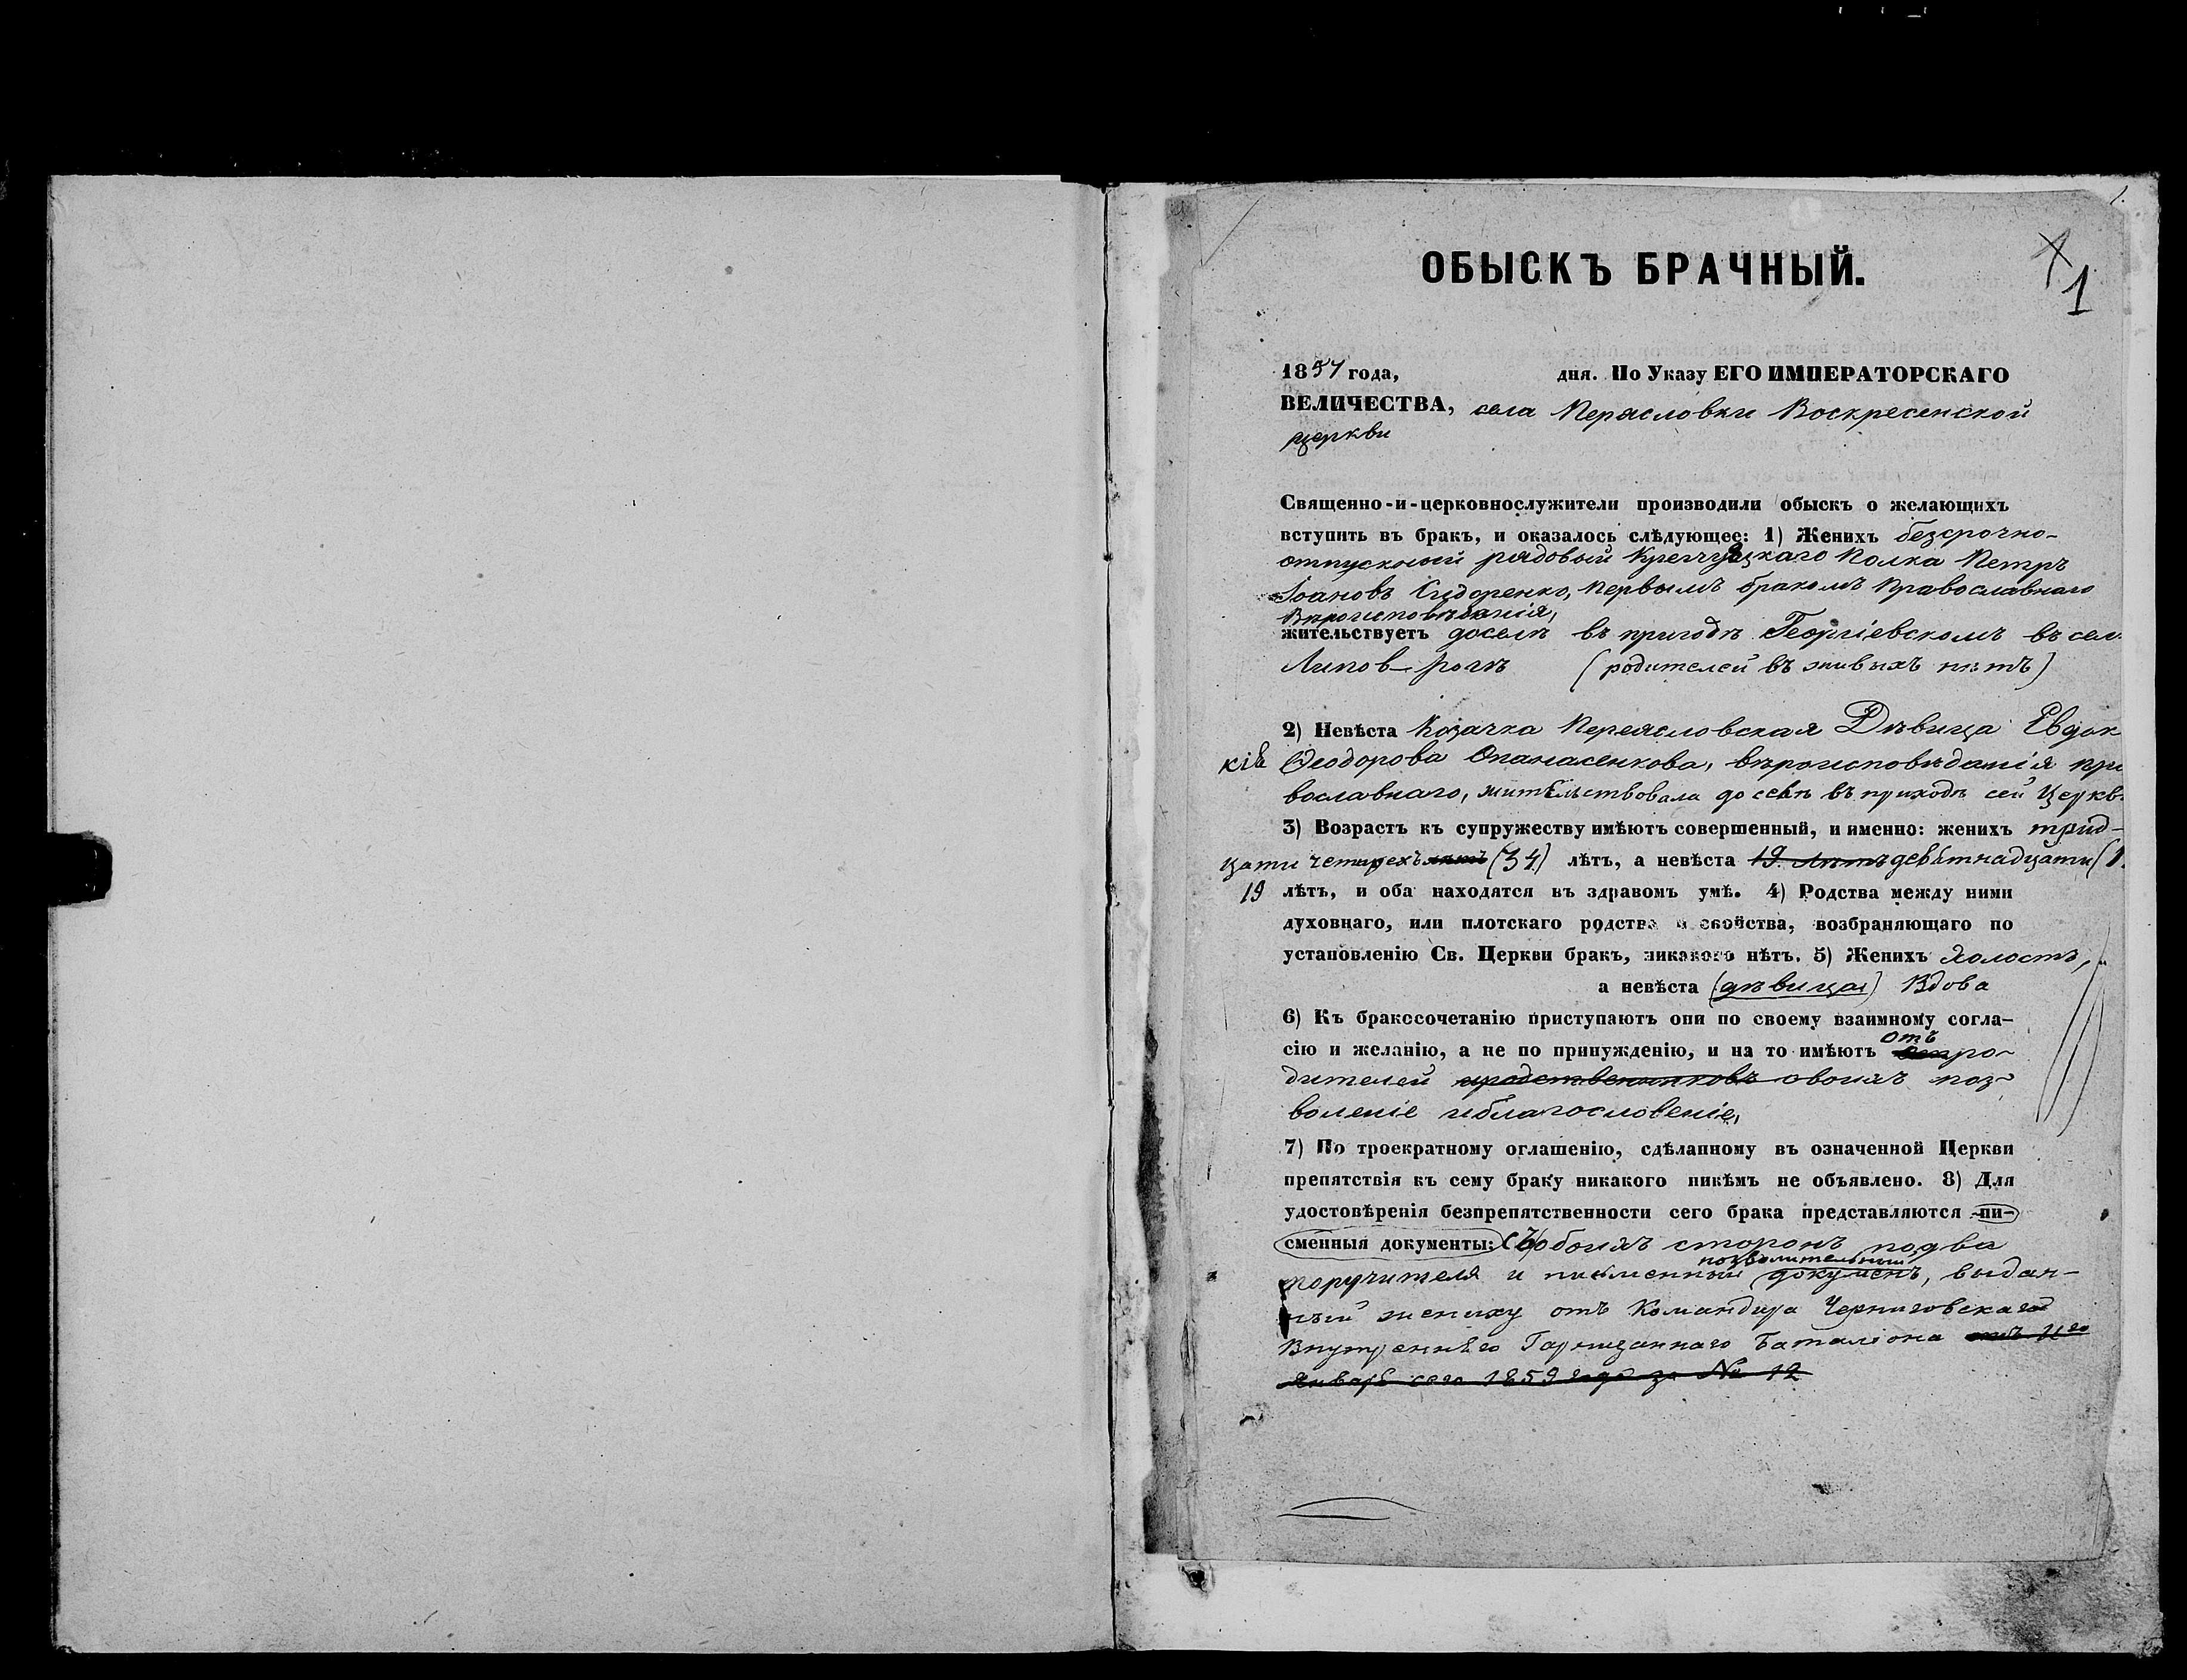 1
ОБЫСКЪ БРАЧНЫЙ.
1857 года, дня. По Указу ЕГО ИМПЕРАТОРСКАГО
ВЕЛИЧЕСТВА, села Перясловки Воскресенской
церкви
Священно-и-церковнослужители производили обыскъ о желающихъ
вступить въ бракъ, и оказалось слѣдующее: 1) Женихъ безсрочно-
отпускной рядовый полка Петръ
Іоановъ Сидоренко, первымъ бракомъ Православнаго
Вѣроисповѣданія,
жительствуетъ доселѣ въ приходѣ Георгіевскомъ въ сел.
Липов-рогѣ (родителей въ живыхъ нѣтъ)
2) Невѣста Козачка Переясловская Дѣвица Евдок
кія Ѳеодорова Опанасенкова, вѣроисповѣданія пра
вославнаго, жительствовала до селѣ въ приходѣ сей Церкв.
3) Возрастъ къ супружеству имѣютъ совершенный, и именно: женихъ трид-
цати четырехъ лѣтъ (34) лѣтъ, а невѣста 19. лѣтъ девятнадцати (1
19 лѣтъ, и оба находятся въ здравомъ умѣ. 4) Родства между ними
духовнаго, или плотскаго родства и свойства, возбраняющаго по
установленію Св. Церкви бракъ, никакого нѣтъ. 5) Женихъ холостъ,
а невѣста (дѣвица) Вдова
6) Къ бракосочетанію приступаютъ они по своему взаимному согла-
сію и желанію, а не по принужденію, и на то имѣютъ отъ ро-
дителей иродственниковъ своихъ поз-
воленіе иблагословеніе,
7) По троекратному оглашенію, сдѣланному въ означенной Церкви
препятствія къ сему браку никакого никѣмъ не объявлено. 8) Для
удостовѣренія безпрепятственности сего брака представляются пи-
сменныя документы: съ обоихъ сторонъ подва
позволительный
поручителя и писменный докуменъ, выдан-
ный жениху отъ Командира Черниговскаго
Внутренняго Гарнизаннаго Баталіона отъ 11го
Январь сего 1859 года за № 12